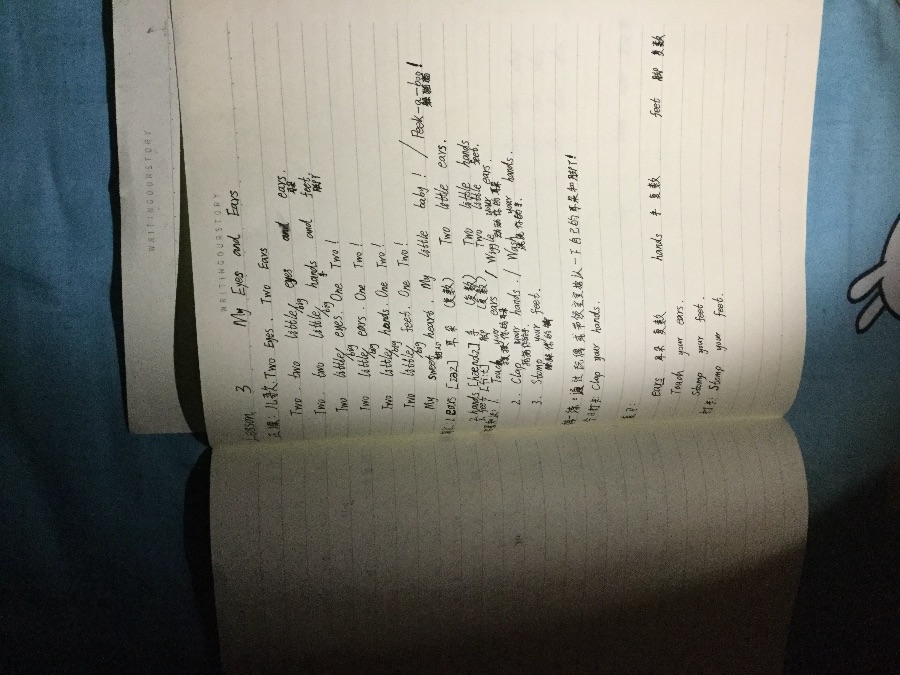 WRITINGOURSTORY
WRITINGOURSTORY
Lesson 3 My Eyes and Ears
正课:儿歌 Two Eyes . Two Ears
Two.. two little/big eyes and ears.
耳朵
Two.. two little/big hands and feet.
手 脚丫
Two little/big eyes. One Two!
Two little/big ears One Two!
Two little/big hands One Two!
Two little/big feet. One Two!
My sweet heart.. My little baby! / Peek-a-boo!
甜心 躲猫猫
1. ears [ɪəz] 耳朵 (复数) Two little ears.
2. hands [hændz] 手 (复数) Two little hands
3. feet [fiːt] 脚 (复数) Two little feet.
1. Touch your ears / Wiggle your ears.
摸摸你的耳朵 动动你的耳朵
2. Clap your hands. / Wash your hands.
拍拍你的手. 洗洗你的手.
3. Stomp your feet.
跺跺你的脚
通过玩偶或带领宝宝指认一下自己的耳朵和脚丫!
今日打卡: Clap your hands.
复习:
ears 耳朵 复数 hands 手 复数 feet 脚 复数
Touch your ears.
Stomp your feet.
打卡: Stomp your feet.